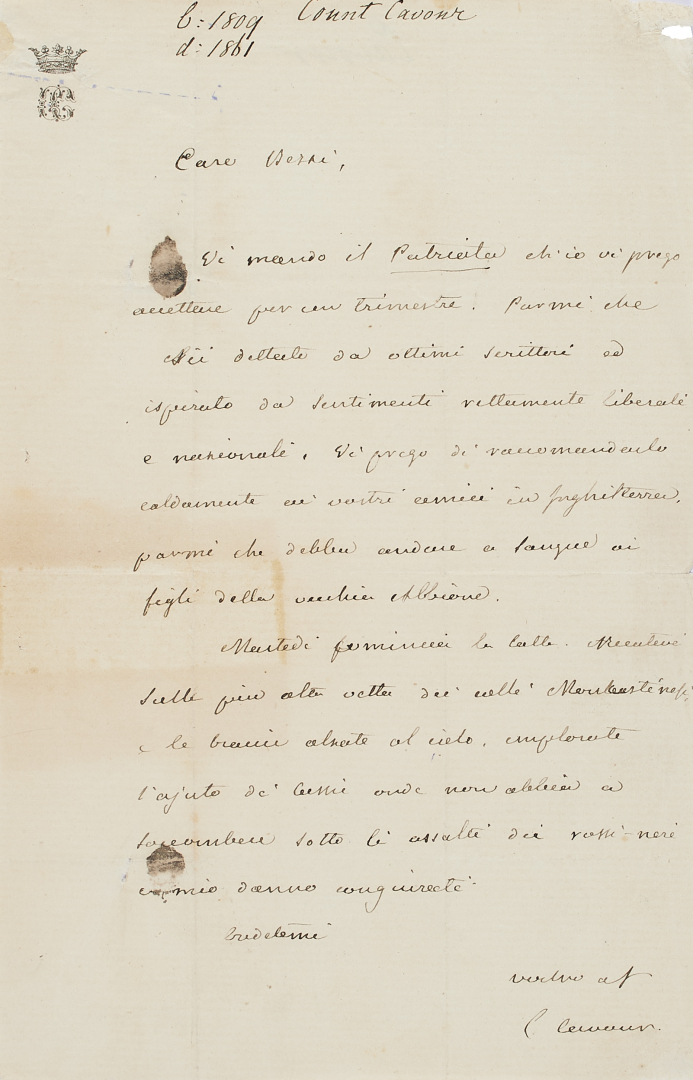 b: 1809 Count Cavour
d: 1861
CC
Caro Bezzi,
Vi mando il Patriota ch'io vi prego
accettare per un trimestre. Parmi che
sii dettato da ottimi scrittori ed
ispirato da sentimenti rettamente liberali
e nazionali. Vi prego di raccomandarlo
caldamente ai vostri amici in Inghilterra,
parmi che debba andare a sangue ai
figli della vecchia Albione.
Martedì comincia la lotta. Recatevi
sulla più alta vetta dei colli
e le braccia alzate al cielo, implorate
l'ajuto di onde non abbia a
soccombere sotto li assalti dei rossi-neri
a mio danno congiurati.
Credetemi
vostro af
C Cavour.